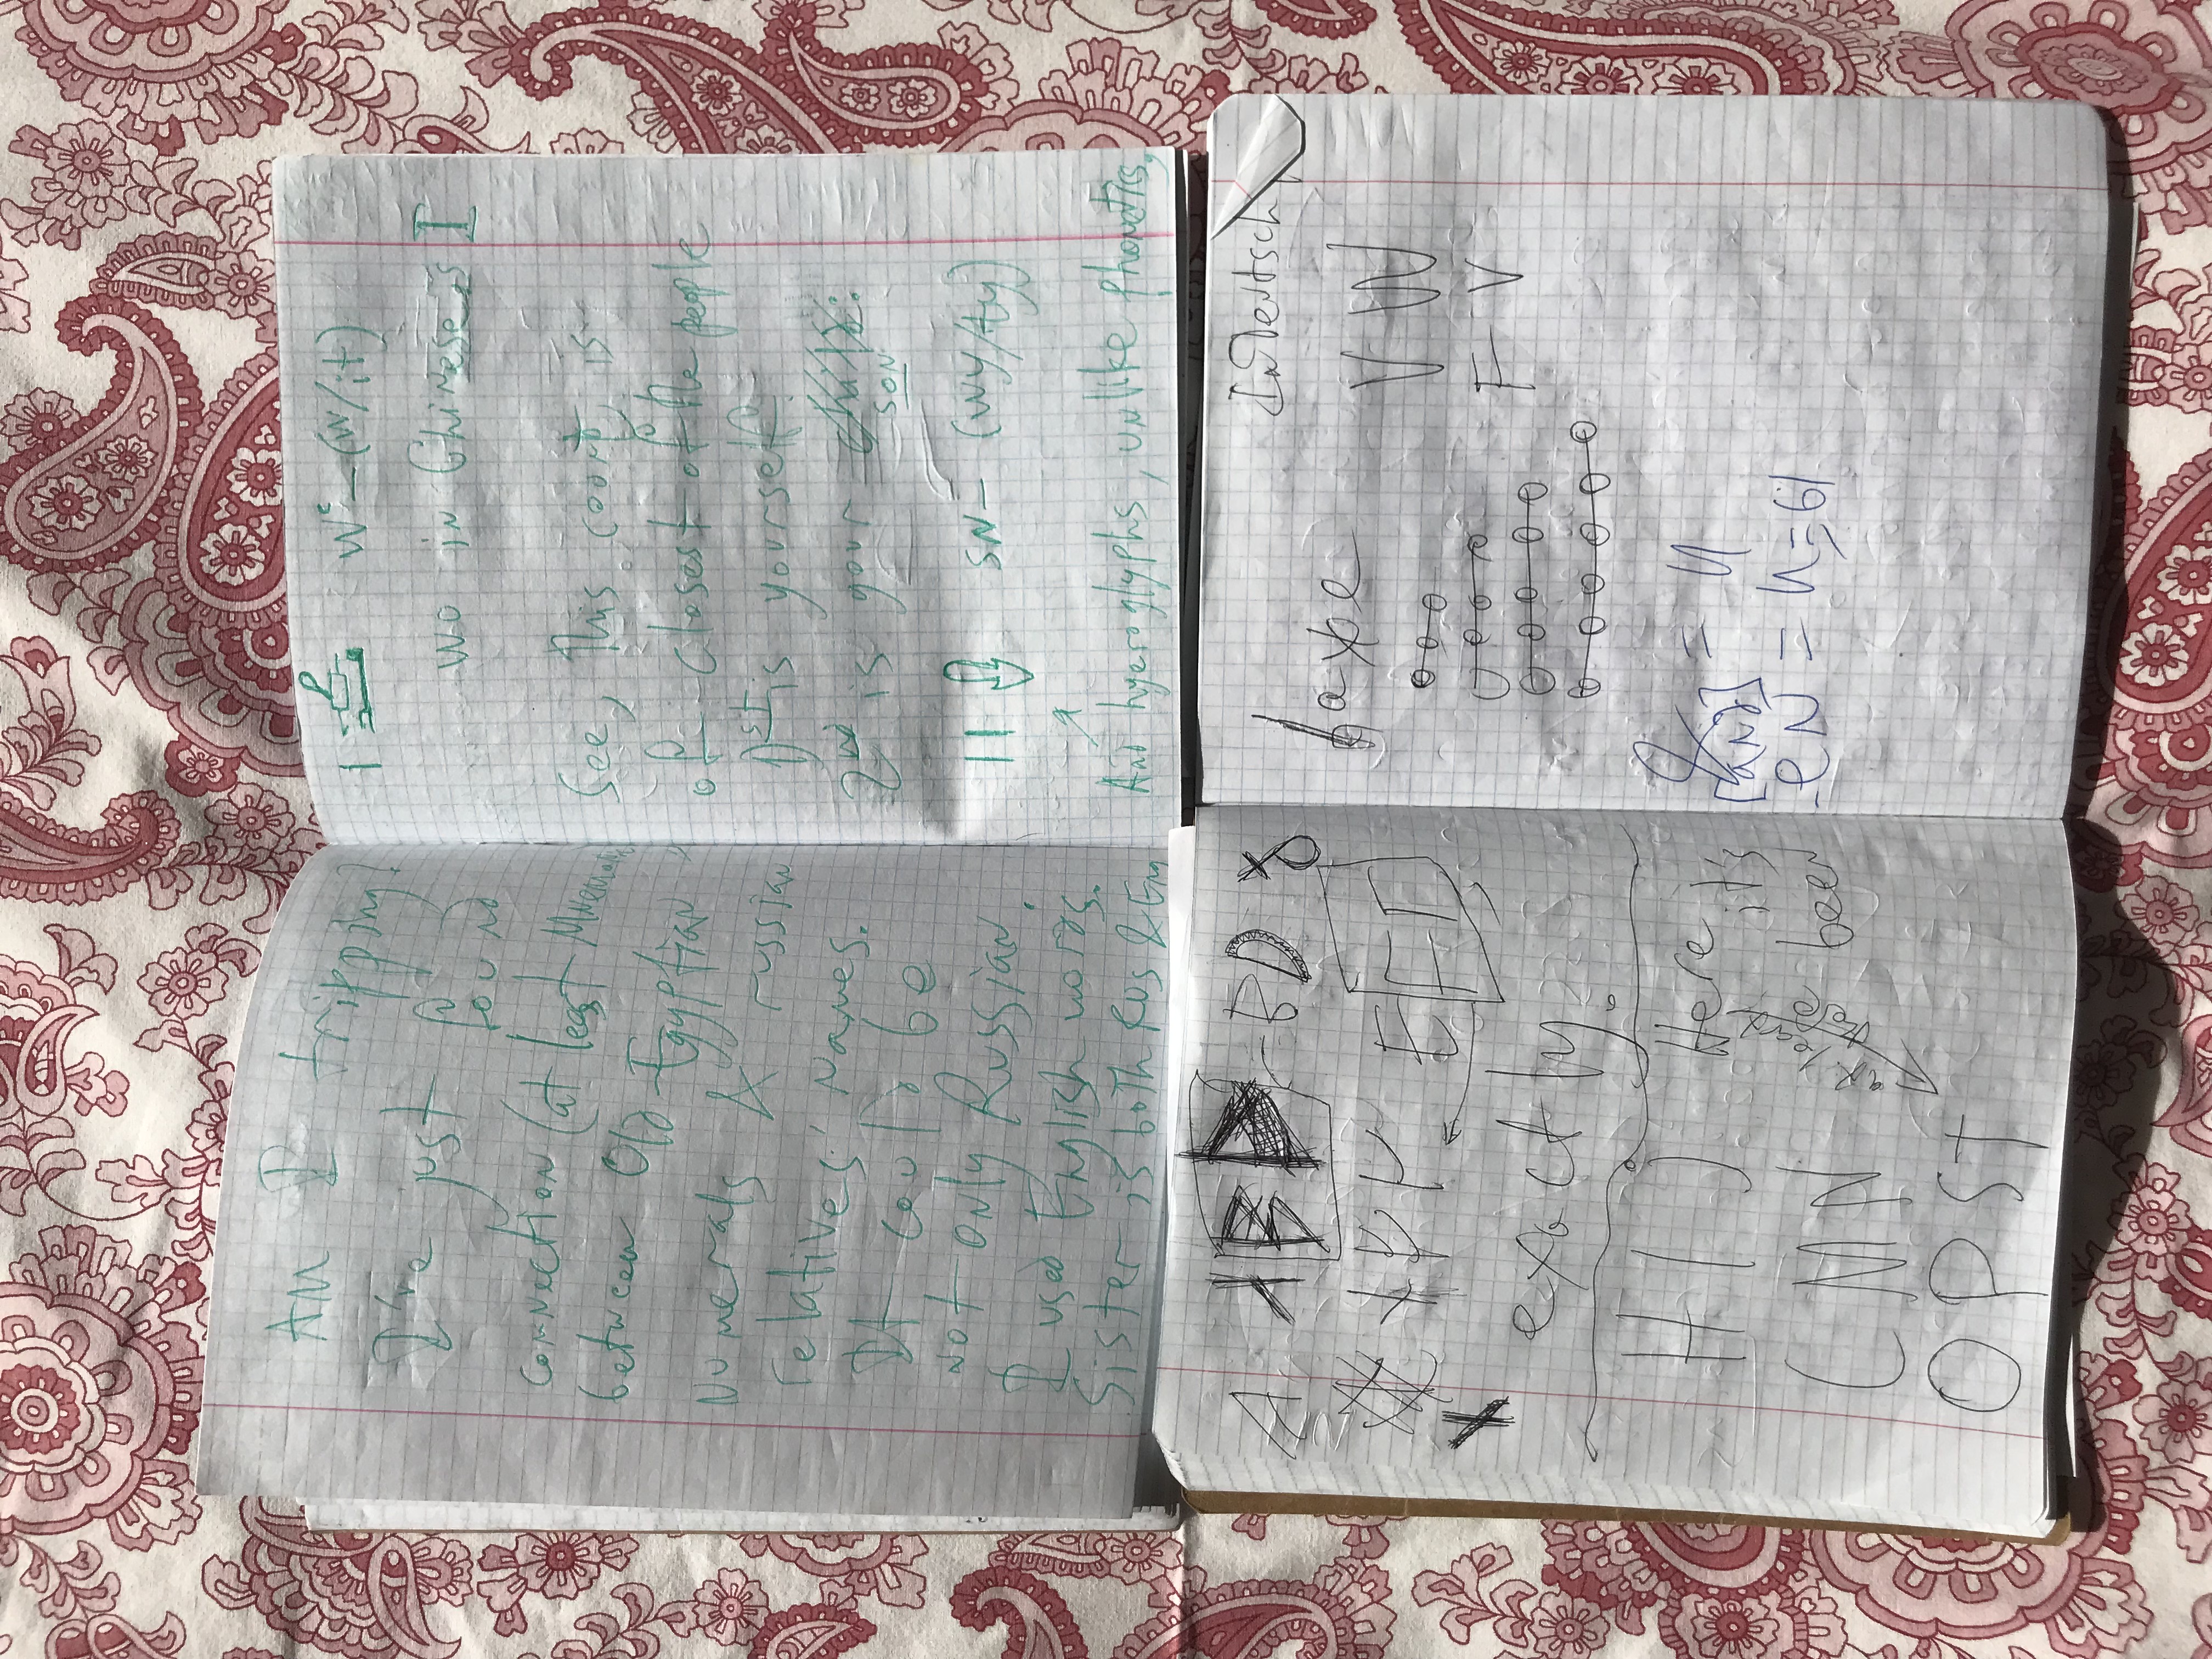 AM I tripping?
I've just
found
connection (at least Mnemonic)
between Old Egyptian
Numerals & russian
relatives' Names.
It could be
not only Russian.
I used English words.
Sister is both Rus & Eng
1 wᶜ – (w/it)
wo in Chinese is I
See, this count is
of closest of the people
1st is yourself.
2nd is your child:
son
11 sN – (wy/ty)
And hyeroglyphs, unlike phonetics,
A B D – BD
E E D
exactly.
H I J Here it's been
at least
L M N
O P S T
In Deutsch
V W
F V
& = и
[and]
en = и = 61